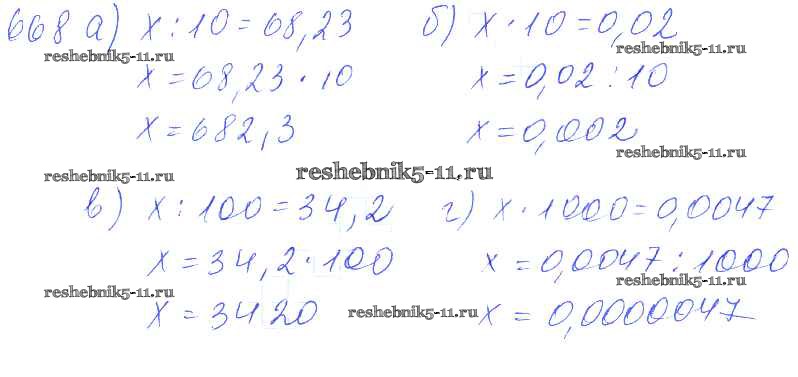 668 а) x : 10 = 68,23 б) x · 10 = 0,02
reshebnik5-11.ru reshebnik5-11.ru
x = 68,23 · 10 x = 0,02 : 10
x = 682,3 x = 0,002
reshebnik5-11.ru reshebnik5-11.ru reshebnik5-11.ru
в) x : 100 = 34,2 г) x · 1000 = 0,0047
x = 34,2 · 100 x = 0,0047 : 1000
reshebnik5-11.ru reshebnik5-11.ru
x = 3420 reshebnik5-11.ru x = 0,0000047